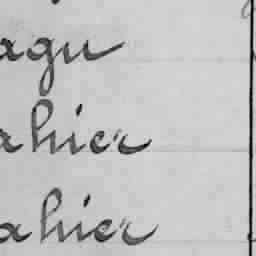 agu
ahier
ahier